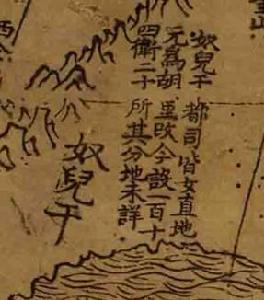 奴兒干都司皆女直地
元爲胡里改今設一百十
四衛二十所其分地未詳
奴兒干